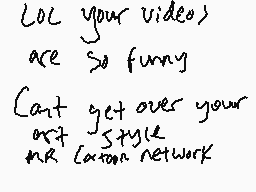 LOL your videos
are so funny
Cant get over your
art style
MR Cartoon network